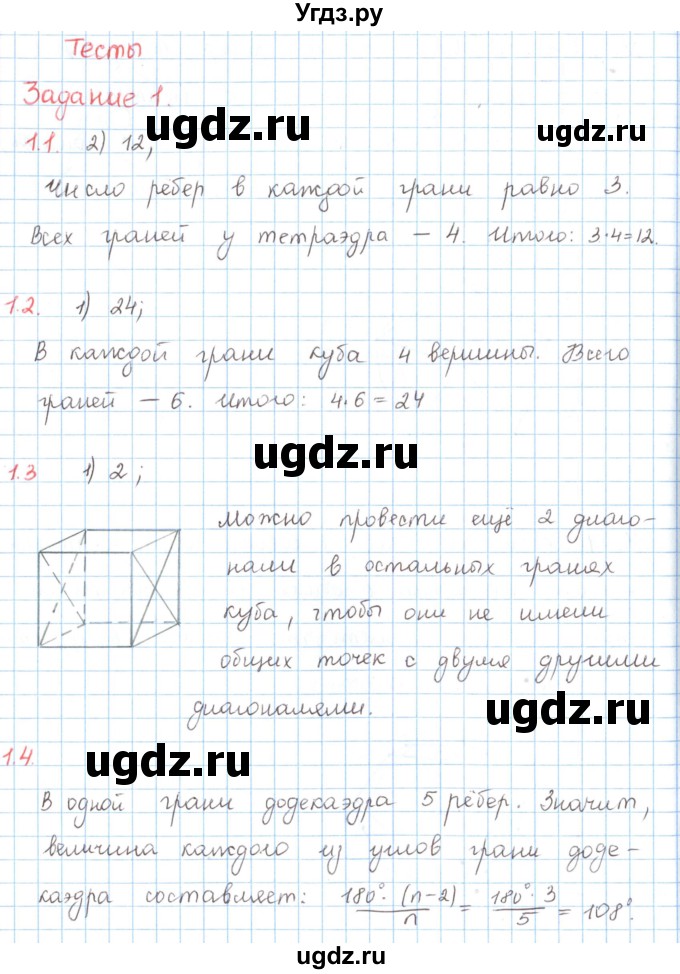 Угдз.ру
Тесты
Задание 1.
ugdz.ru
ugdz.ru
1.1. 2) 12;
Число рёбер в каждой грани равно 3.
Всех граней у тетраэдра – 4. Итого: 3·4=12.
1.2. 1) 24;
В каждой грани куба 4 вершины. Всего
граней – 6. Итого: 4·6=24
ugdz.ru
1.3 1) 2;
Можно провести ещё 2 диаго-
нали в остальных гранях
куба, чтобы они не имели
общих точек с двумя другими
диагоналями.
ugdz.ru
ugdz.ru
1.4.
В одной грани додекаэдра 5 рёбер. Значит,
величина каждого из углов грани доде-
каэдра составляет: 180°·(n-2)/n = 180°·3/5 = 108°.
ugdz.ru